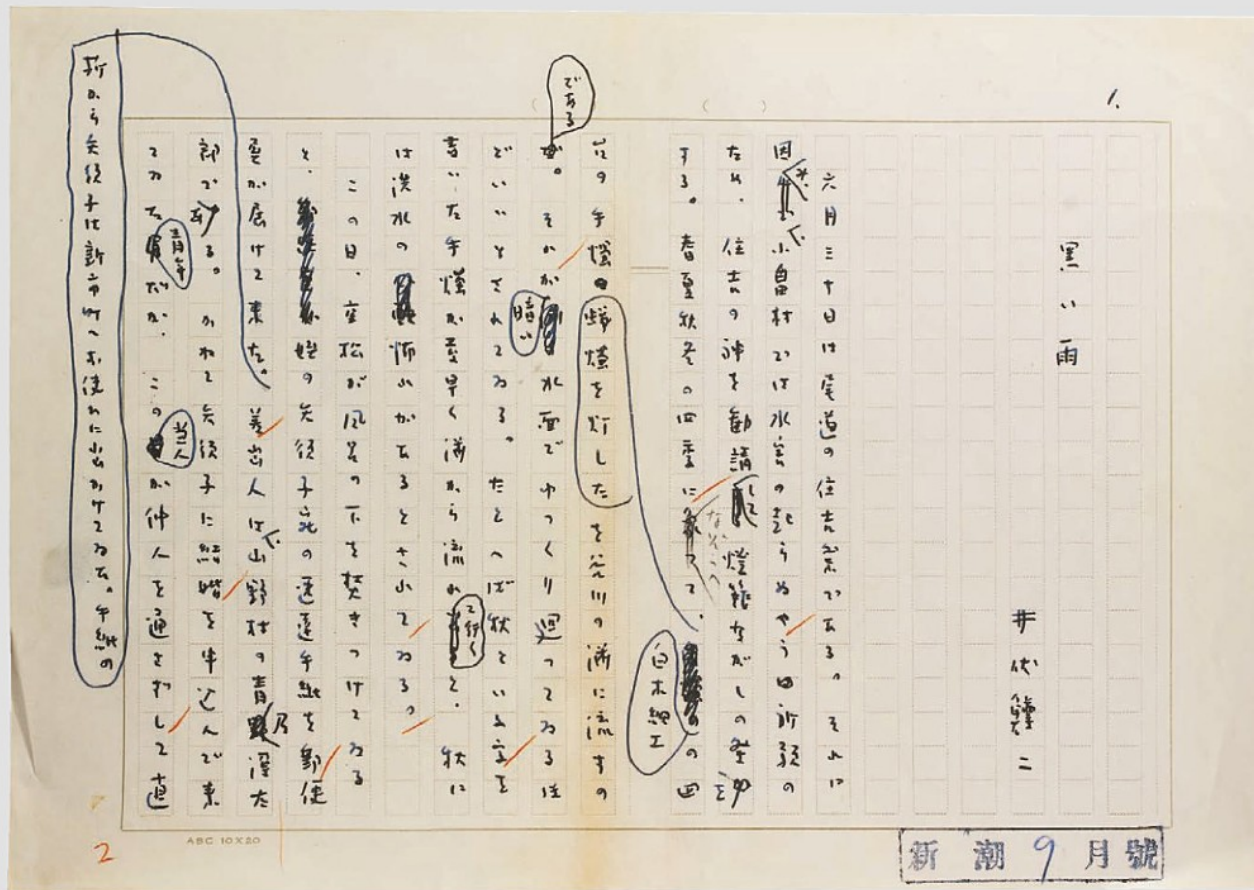 1.
黒い雨
井伏鱒二
六月三十日は尾道の住吉祭である。それに
因み、小畠村では水害の起らぬやう祈願の
ため、住吉の神を勧請して燈籠ながしの
する。春夏秋冬の四季になぞらへて、白木細工の四
蝋燭を灯した
を谷川の淵に流すの
である。それが暗い水面でゆつくり廻つてゐるほ
どいいとされてゐる。たとへば秋といふ字を
書いた手が至早く淵から流れて行くと、秋に
は洪水の怖れがあるとされてゐる。
この日、重松が風呂の下を焚きつけてゐる
と、姪の矢須子宛の速達手紙を郵便
夫が届けて来た。差出人は山野村の青乃
郎である。かねて矢須子に結婚を申込んで来
てゐた青年だが、この当人が仲人を通さずして直
折から矢須子は新市町へお使ひに出かけてゐた。手紙の
ABC 10×20
2
新潮9月號